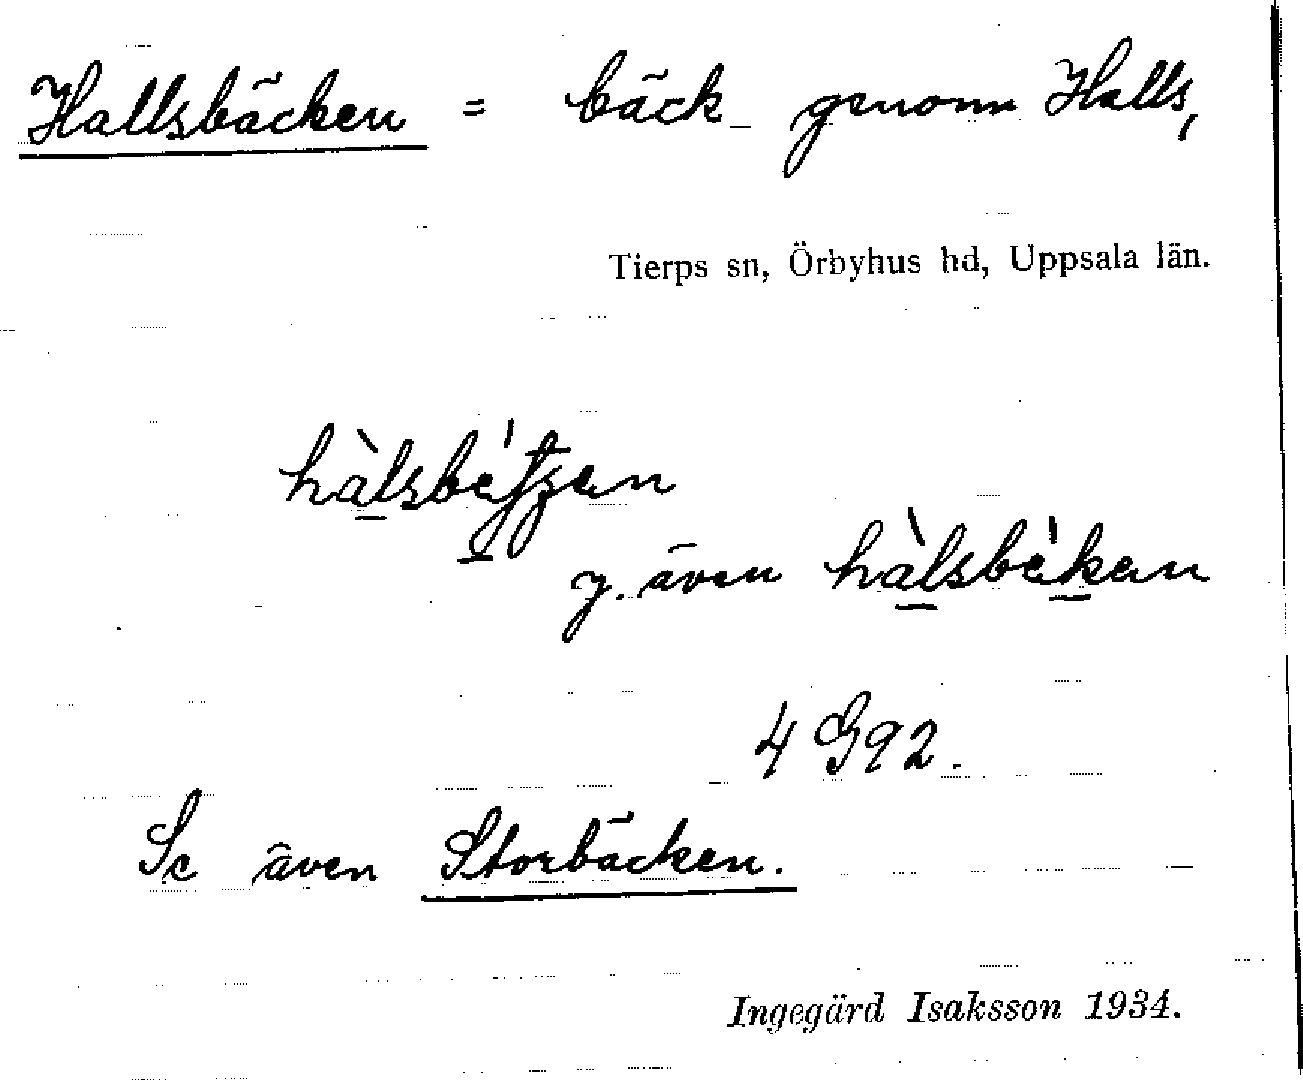 Hallsbäcken = bäck genom Halls,
Tierps sn, Örbyhus hd, Uppsala län.
y. även
4 G92.
Se även Storbäcken.
Ingegärd Isaksson 1934.